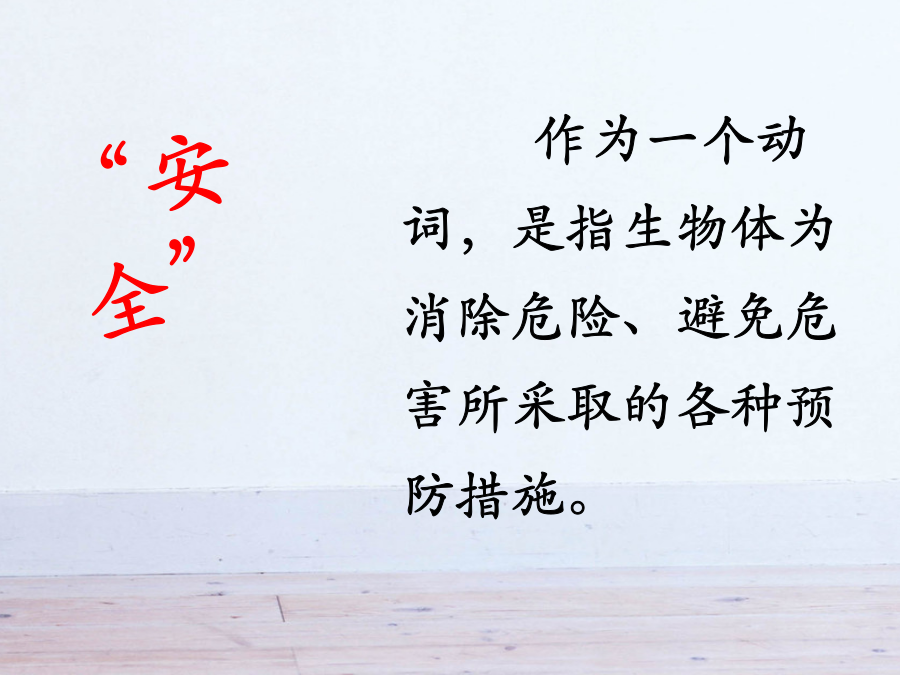 “安
全”
作为一个动
词，是指生物体为
消除危险、避免危
害所采取的各种预
防措施。